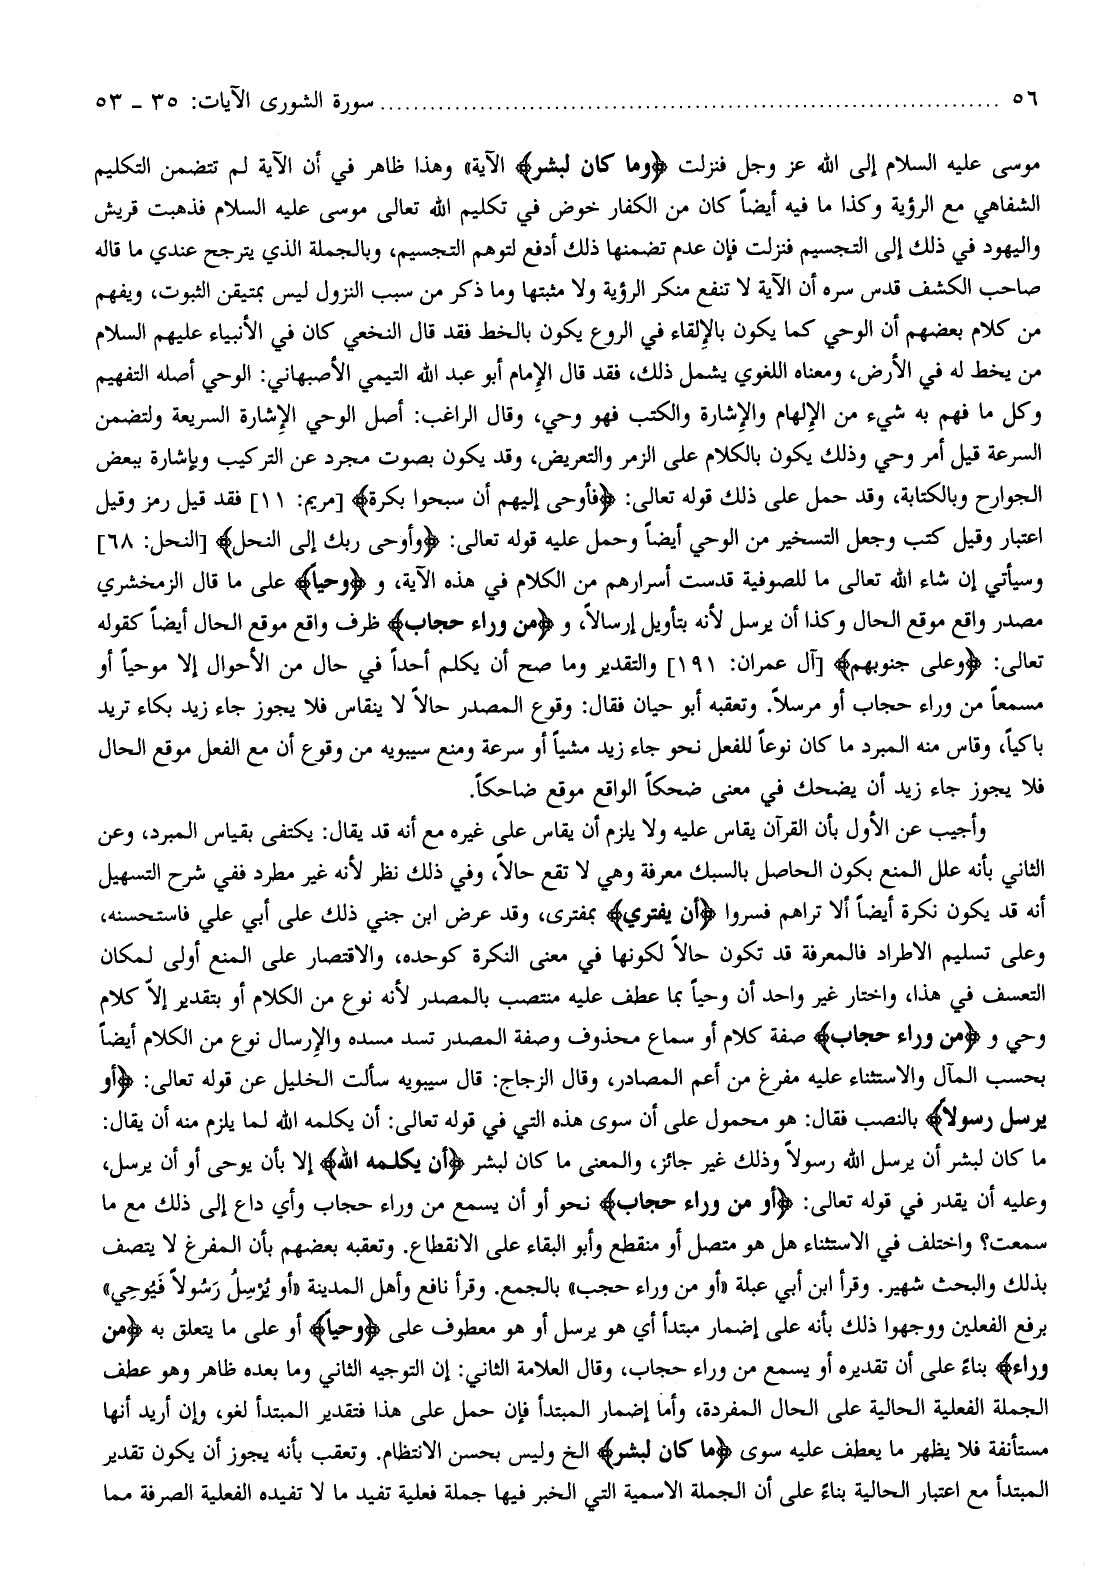 ٥٦ ........................................................................... سورة الشورى الآيات: ٣٥ ـ ٥٣
موسى عليه السلام إلى الله عز وجل فنزلت ﴿وما كان لبشر﴾ الآية» وهذا ظاهر في أن الآية لم تتضمن التكليم
الشفاهي مع الرؤية وكذا ما فيه أيضاً كان من الكفار خوض في تكليم الله تعالى موسى عليه السلام فذهبت قريش
واليهود في ذلك إلى التجسيم فنزلت فإن عدم تضمنها ذلك أدفع لتوهم التجسيم، وبالجملة الذي يترجح عندي ما قاله
صاحب الكشف قدس سره أن الآية لا تنفع منكر الرؤية ولا مثبتها وما ذكر من سبب النزول ليس بمتيقن الثبوت، ويفهم
من كلام بعضهم أن الوحي كما يكون بالإلقاء في الروع يكون بالخط فقد قال النخعي كان في الأنبياء عليهم السلام
من يخط له في الأرض، ومعناه اللغوي يشمل ذلك، فقد قال الإمام أبو عبد الله التيمي الأصبهاني: الوحي أصله التفهيم
وكل ما فهم به شيء من الإلهام والإشارة والكتب فهو وحي، وقال الراغب: أصل الوحي الإشارة السريعة ولتضمن
السرعة قيل أمر وحي وذلك يكون بالكلام على الزمر والتعريض، وقد يكون بصوت مجرد عن التركيب وبإشارة ببعض
الجوارح وبالكتابة، وقد حمل على ذلك قوله تعالى: ﴿فأوحى إليهم أن سبحوا بكرة﴾ [مريم: ١١] فقد قيل رمز وقيل
اعتبار وقيل كتب وجعل التسخير من الوحي أيضاً وحمل عليه قوله تعالى: ﴿وأوحى ربك إلى النحل﴾ [النحل: ٦٨]
وسيأتي إن شاء الله تعالى ما للصوفية قدست أسرارهم من الكلام في هذه الآية، و ﴿وحياً﴾ على ما قال الزمخشري
مصدر واقع موقع الحال وكذا أن يرسل لأنه بتأويل إرسالاً، و ﴿من وراء حجاب﴾ ظرف واقع موقع الحال أيضاً كقوله
تعالى: ﴿وعلى جنوبهم﴾ [آل عمران: ١٩١] والتقدير وما صح أن يكلم أحداً في حال من الأحوال إلا موحياً أو
مسمعاً من وراء حجاب أو مرسلاً. وتعقبه أبو حيان فقال: وقوع المصدر حالاً لا ينقاس فلا يجوز جاء زيد بكاء تريد
باكياً، وقاس منه المبرد ما كان نوعاً للفعل نحو جاء زيد مشياً أو سرعة ومنع سيبويه من وقوع أن مع الفعل موقع الحال
فلا يجوز جاء زيد أن يضحك في معنى ضحكاً الواقع موقع ضاحكاً.
وأجيب عن الأول بأن القرآن يقاس عليه ولا يلزم أن يقاس على غيره مع أنه قد يقال: يكتفى بقياس المبرد، وعن
الثاني بأنه علل المنع بكون الحاصل بالسبك معرفة وهي لا تقع حالاً، وفي ذلك نظر لأنه غير مطرد ففي شرح التسهيل
أنه قد يكون نكرة أيضاً ألا تراهم فسروا ﴿أن يفتري﴾ بمفترى، وقد عرض ابن جني ذلك على أبي علي فاستحسنه،
وعلى تسليم الاطراد فالمعرفة قد تكون حالاً لكونها في معنى النكرة كوحده، والاقتصار على المنع أولى لمكان
التعسف في هذا، واختار غير واحد أن وحياً بما عطف عليه منتصب بالمصدر لأنه نوع من الكلام أو بتقدير إلاّ كلام
وحي و ﴿من وراء حجاب﴾ صفة كلام أو سماع محذوف وصفة المصدر تسد مسده والإرسال نوع من الكلام أيضاً
بحسب المآل والاستثناء عليه مفرغ من أعم المصادر، وقال الزجاج: قال سيبويه سألت الخليل عن قوله تعالى: ﴿أو
يرسل رسولاً﴾ بالنصب فقال: هو محمول على أن سوى هذه التي في قوله تعالى: أن يكلمه الله لما يلزم منه أن يقال:
ما كان لبشر أن يرسل الله رسولاً وذلك غير جائز، والمعنى ما كان لبشر ﴿أن يكلمه الله﴾ إلا بأن يوحى أو أن يرسل،
وعليه أن يقدر في قوله تعالى: ﴿أو من وراء حجاب﴾ نحو أو أن يسمع من وراء حجاب وأي داع إلى ذلك مع ما
سمعت؟ واختلف في الاستثناء هل هو متصل أو منقطع وأبو البقاء على الانقطاع. وتعقبه بعضهم بأن المفرغ لا يتصف
بذلك والبحث شهير. وقرأ ابن أبي عبلة «أو من وراء حجب» بالجمع. وقرأ نافع وأهل المدينة «أو يُرْسِلُ رَسُولاً فَيُوحِي»
برفع الفعلين ووجهوا ذلك بأنه على إضمار مبتدأ أي هو يرسل أو هو معطوف على ﴿وحياً﴾ أو على ما يتعلق به ﴿من
وراء﴾ بناءً على أن تقديره أو يسمع من وراء حجاب، وقال العلامة الثاني: إن التوجيه الثاني وما بعده ظاهر وهو عطف
الجملة الفعلية الحالية على الحال المفردة، وأما إضمار المبتدأ فإن حمل على هذا فتقدير المبتدأ لغو، وإن أريد أنها
مستأنفة فلا يظهر ما يعطف عليه سوى ﴿ما كان لبشر﴾ الخ وليس بحسن الانتظام. وتعقب بأنه يجوز أن يكون تقدير
المبتدأ مع اعتبار الحالية بناءً على أن الجملة الاسمية التي الخبر فيها جملة فعلية تفيد ما لا تفيده الفعلية الصرفة مما